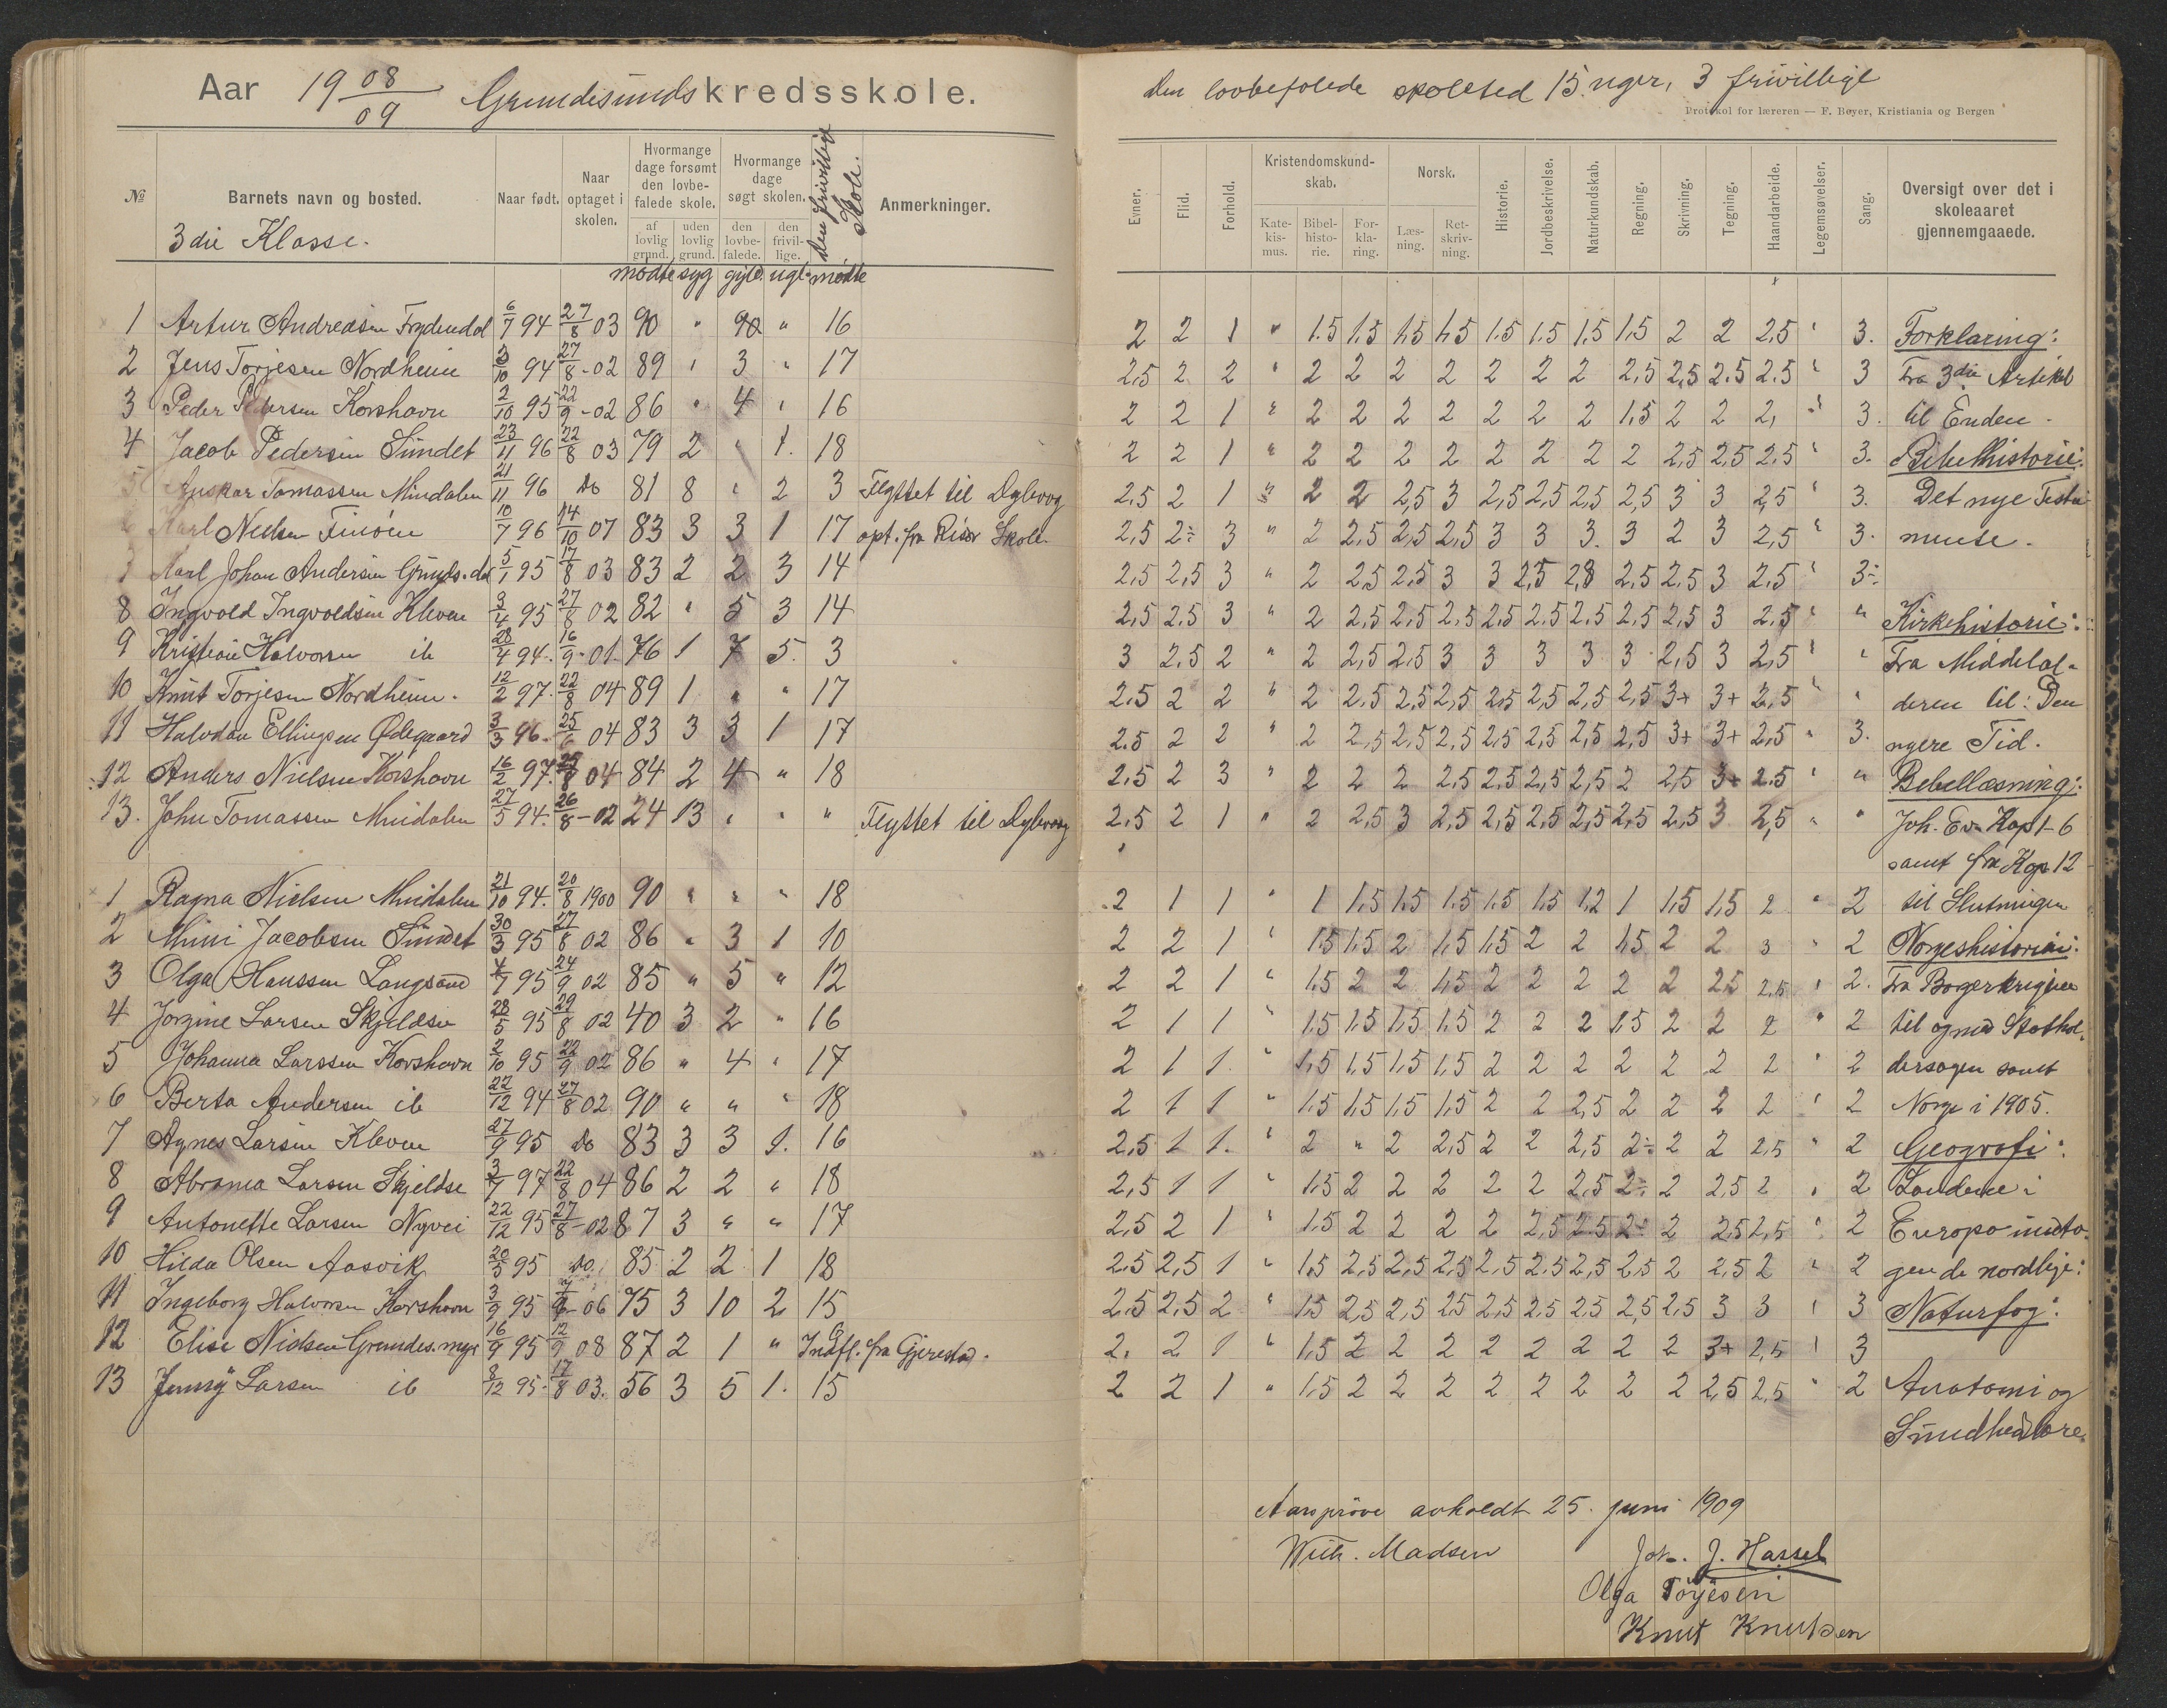 Aar 19 08/09 Grundesunds kredsskole.
№ Barnets navn og bosted. Naar født. Naar optaget i skolen. Hvormange dage forsømt den lovbefalede skole. af lovlig grund. uden lovlig grund. Hvormange dage søgt skolen. den lovbefalede. den frivillige. Den frivillige Skole. Anmerkninger.
3die Klasse.
mødte syg gyld. ugl. mødte
1 Artur Andreasen Frydendal 6/7 94 27/8 03 90 " 90 " 16
2 Jens Torjesen Nordheim 3/10 94 27/8-02 89 " 3 " 17
3 Peder Pedersen Korshavn 2/10 95 22/9-02 86 " 4 " 16
4 Jacob Pedersen Sundet 23/11 96 22/8 03 79 2 " 1. 18
5 Anskar Tomassen Mindalen 21/11 96 Do 81 8 " 2 3 Flyttet til Dybvaag
6 Karl Nielsen Finøen 10/7 96 14/10 07 83 3 3 1 17 opt. fra Risør Skole
7 Karl Johan Andersen Grunds.dal 5/1 95 17/8 03 83 2 2 3 14
8 Ingvald Ingvaldsen Kleven 3/4 95 27/8 02 82 " 5 3 14
9 Kristian Halvorsen ib 28/4 94. 16/9-01 76 1 7 5. 3
10 Knut Torjesen Nordheim. 12/2 97. 22/8 04 89 1 " " 17
11 Halvdan Ellingsen Ødegaard 3/3 96. 25/6 04 83 3 3 1 17
12 Anders Nielsen Korshavn 16/2 97. 25/8 04 84 2 4 " 18
13. John Tomassen Mindalen 27/5 94. 26/8-02 24 13 " " " Flyttet til Dybvaag
1 Ragna Nielsen Mindalen 21/10 94. 20/8 1900 90 " " " 18
2 Mimi Jacobsen Sundet 30/3 95 27/8 02 86 " 3 1 10
3 Olga Hanssen Langsand 4/7 95 24/9 02 85 " 5 " 12
4 Jorgine Larsen Skjeldsø 28/5 95 29/8 02 40 3 2 " 16
5 Johanna Larssen Korshavn 2/10 95 22/9 02 86 " 4 " 17
6 Berta Andersen ib 22/12 94 27/8 02 90 " " " 18
7 Agnes Larsen Kleven 27/9 95 Do 83 3 3 1. 16
8 Abrama Larsen Skjeldsø 3/7 97 22/8 04 86 2 2 " 18
9 Antonette Larsen Nyvei 22/12 95 27/8-02 87 3 " " 17
10 Hilda Olsen Aasvik 20/5 95 Do. 85 2 2 1 18
11 Ingeborg Halvorsen Korshavn 3/9 95 06 75 3 10 2 15
12 Elise Nielsen Grundes.myr 16/9 95 12/9 08 87 2 1 " Indfl. fra Gjerestad.
13 Jenny Larsen ib 8/12 95. 17/8 03. 56 3 5 1. 15
Den lovbefalede skoletid 15 uger, 3 frivillige
Protokol for læreren — F. Beyer, Kristiania og Bergen
Evner. Flid. Forhold. Kristendomskundskab. Katekismus. Bibelhistorie. Forklaring. Norsk. Læsning. Retskrivning. Historie. Jordbeskrivelse. Naturkundskab. Regning. Skrivning. Tegning. Haandarbeide. Legemsøvelser. Sang. Oversigt over det i skoleaaret gjennemgaaede.
2 2 1 " 1.5 1.5 1.5 1.5 1.5 1.5 1.5 1.5 2 2 2.5 " 3. Forklaring:
2.5 2 2 " 2 2 2 2 2 2 2 2,5 2,5 2.5 2.5 " 3 Fra 3die Artikel
2 2 1 " 2 2 2 2 2 2 2 1.5 2 2 2, " 3. til Enden.
2 2 1 " 2 2 2 2 2 2 2 2 2,5 2,5 2.5 " 3. Bibelhistorie:
2.5 2 1 " 2 2 2,5 3 2,5 2,5 2,5 2,5 3 3 2,5 " 3. Det nye Testa-
2,5 2÷ 3 " 2 2,5 2,5 2,5 3 3 3. 3 2 3 2,5 " 3. mente.
2,5 2,5 3 " 2 2,5 2,5 3 3 2,5 2,8 2,5 2,5 3 2,5 " 3÷
2,5 2.5 3 " 2 2,5 2,5 2,5 2,5 2,5 2,5 2,5 2,5 3 2.5 " " Kirkehistorie:
3 2.5 2 " 2 2,5 2,5 3 3 3 3 3 2,5 3 2,5 " " Fra Middelal-
2.5 2 2 " 2 2.5 2,5 2,5 2,5 2,5 2,5 2,5 3+ 3+ 2,5 " " deren til: Den
2.5 2 2 " 2 2,5 2,5 2,5 2,5 2,5 2,5 2,5 3+ 3+ 2,5 " 3. nyere Tid.
2.5 2 3 " 2 2 2 2,5 2,5 2,5 2,5 2 2,5 3+ 2.5 " " Bibellæsning:
2.5 2 1 " 2 2,5 3 2,5 2,5 2,5 2,5 2,5 2,5 3 2,5 " " Joh. Ev. Kap 1-6
samt fra Kap. 12
2 1 1 " 1 1.5 1.5 1.5 1.5 1.5 1,2 1 1,5 1,5 2 " 2 til Slutningen
2 2 1 " 1.5 1.5 2 1,5 1,5 2 2 1.5 2 2 3 " 2 Norgeshistorien:
2 2 1 " 1.5 2 2 1.5 2 2 2 2 2 2,5 2,5 " 2. Fra Borgerkrigene
2 1 1 " 1.5 1.5 1.5 1.5 2 2 2 1.5 2 2 2 " 2 til og med Stathol-
2 1 1. " 1.5 1,5 1,5 1,5 2 2 2 2 2 2 2 " 2 dersagen samt
2 1 1 " 1.5 1,5 1,5 1,5 2 2 2,5 2 2 2 2 " 2 Norge i 1905.
2,5 1 1. " 2 " 2 2,5 2 2 2,5 2÷ 2 2 2,5 " 2 Geografi:
2,5 1 1 " 1.5 2 2 2 2 2 2,5 2÷ 2 2,5 2 " 2 Landene i
2,5 2 1 " 1.5 2 2 2 2 2,5 2.5 2÷ 2 2,5 2,5 " 2 Europa undta-
2.5 2,5 1 " 1.5 2,5 2,5 2,5 2,5 2.5 2,5 2,5 2 2,5 2 " 2 gen de nordlige:
2.5 2,5 2 " 1.5 2,5 2,5 2,5 2,5 2,5 2,5 2,5 2,5 3 3 " 3 Naturfag:
2. 2 1 " 1,5 2 2 2 2 2 2 2 2 3+ 2,5 " 3
2 2 1 " 1.5 2 2 2 2 2 2 2 2 2,5 2,5 " 2 Anatomi og
Sundhedslære.
Aarsprøve avholdt 25. juni 1909
Wilh. Madsen Joh. J. Hassel
Olga Torjesen
Knut Knutsen